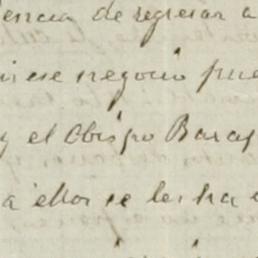 encia de regresar a
ese negocio pue
y el Obispo Baraj
a ellos se les ha